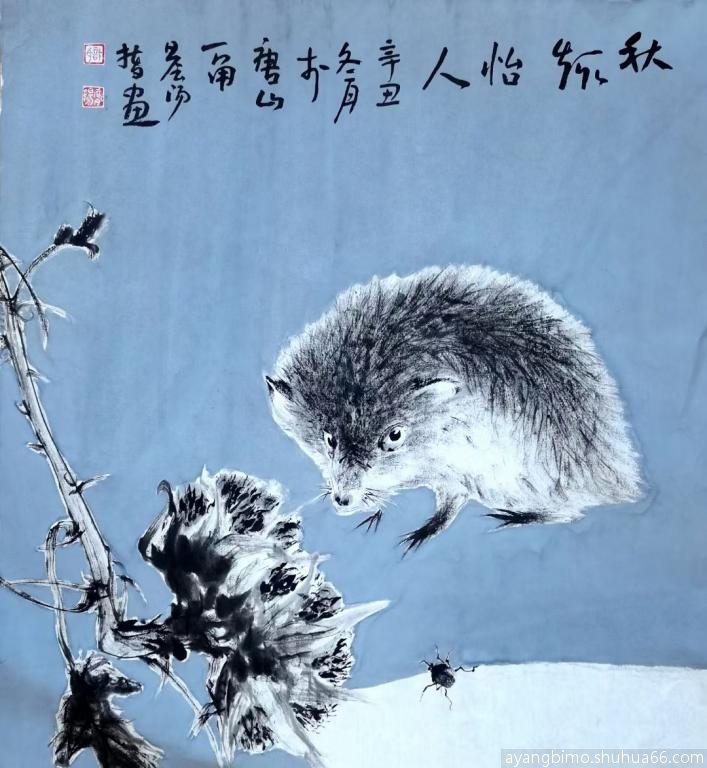 秋
怡
人
辛丑
冬月
于
唐山
一角
阳
指画
ayangbimo.shuhua66.com